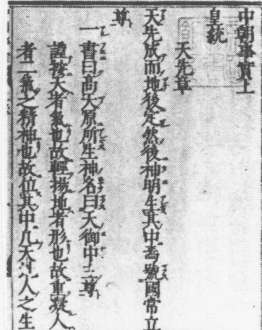 中朝事實上
皇統
天先章
天先成而地後定然後神明生其中焉號國常立
尊
一書曰高天原所生神名曰天御中主尊
謹按天者氣也故輕揚地者形也故重凝人
者二氣之精神也故位其中凡天地人之生